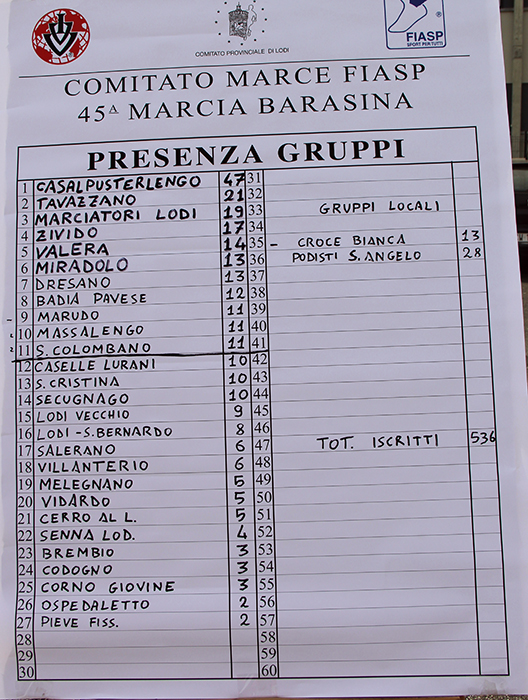 COMITATO PROVINCIALE DI LODI
FIASP
SPORT PER TUTTI
COMITATO MARCE FIASP
45ᴬ MARCIA BARASINA
PRESENZA GRUPPI
1 CASALPUSTERLENGO 47 31
2 TAVAZZANO 21 32
3 MARCIATORI LODI 19 33 GRUPPI LOCALI
4 ZIVIDO 17 34
5 VALERA 14 35 - CROCE BIANCA 13
6 MIRADOLO 13 36 PODISTI S. ANGELO 28
7 DRESANO 13 37
8 BADIA PAVESE 12 38
9 MARUDO 11 39
10 MASSALENGO 11 40
11 S. COLOMBANO 11 41
12 CASELLE LURANI 10 42
13 S. CRISTINA 10 43
14 SECUGNAGO 10 44
15 LODI VECCHIO 9 45
16 LODI - S. BERNARDO 8 46
17 SALERANO 6 47 TOT. ISCRITTI 536
18 VILLANTERIO 6 48
19 MELEGNANO 5 49
20 VIDARDO 5 50
21 CERRO AL L. 5 51
22 SENNA LOD. 4 52
23 BREMBIO 3 53
24 CODOGNO 3 54
25 CORNO GIOVINE 3 55
26 OSPEDALETTO 2 56
27 PIEVE FISS. 2 57
28 58
29 59
30 60